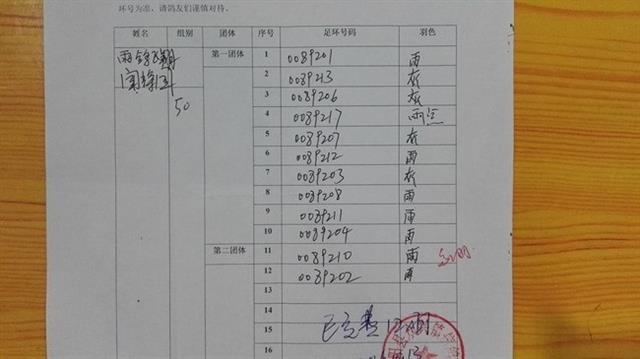 环号为准，请鸽友们谨慎对待。
姓名 组别 团体 序号 足环号码 羽色
第一团体 1 0089201 雨
2 0089213 灰
50 3 0089206 灰
4 0089217 雨点
5 0089207 灰
6 0089212 雨
7 0089203 灰
8 0089208 雨
9 0089211 雨
10 0089204 雨
第二团体 11 0089210 雨
12 0089202 雨
13
14
15
16